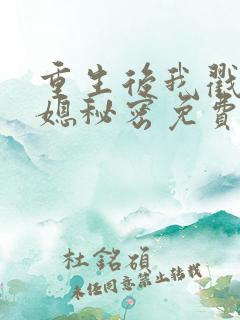 重生后我戳
媳秘密免費
杜銘碩
未经同意禁止转载